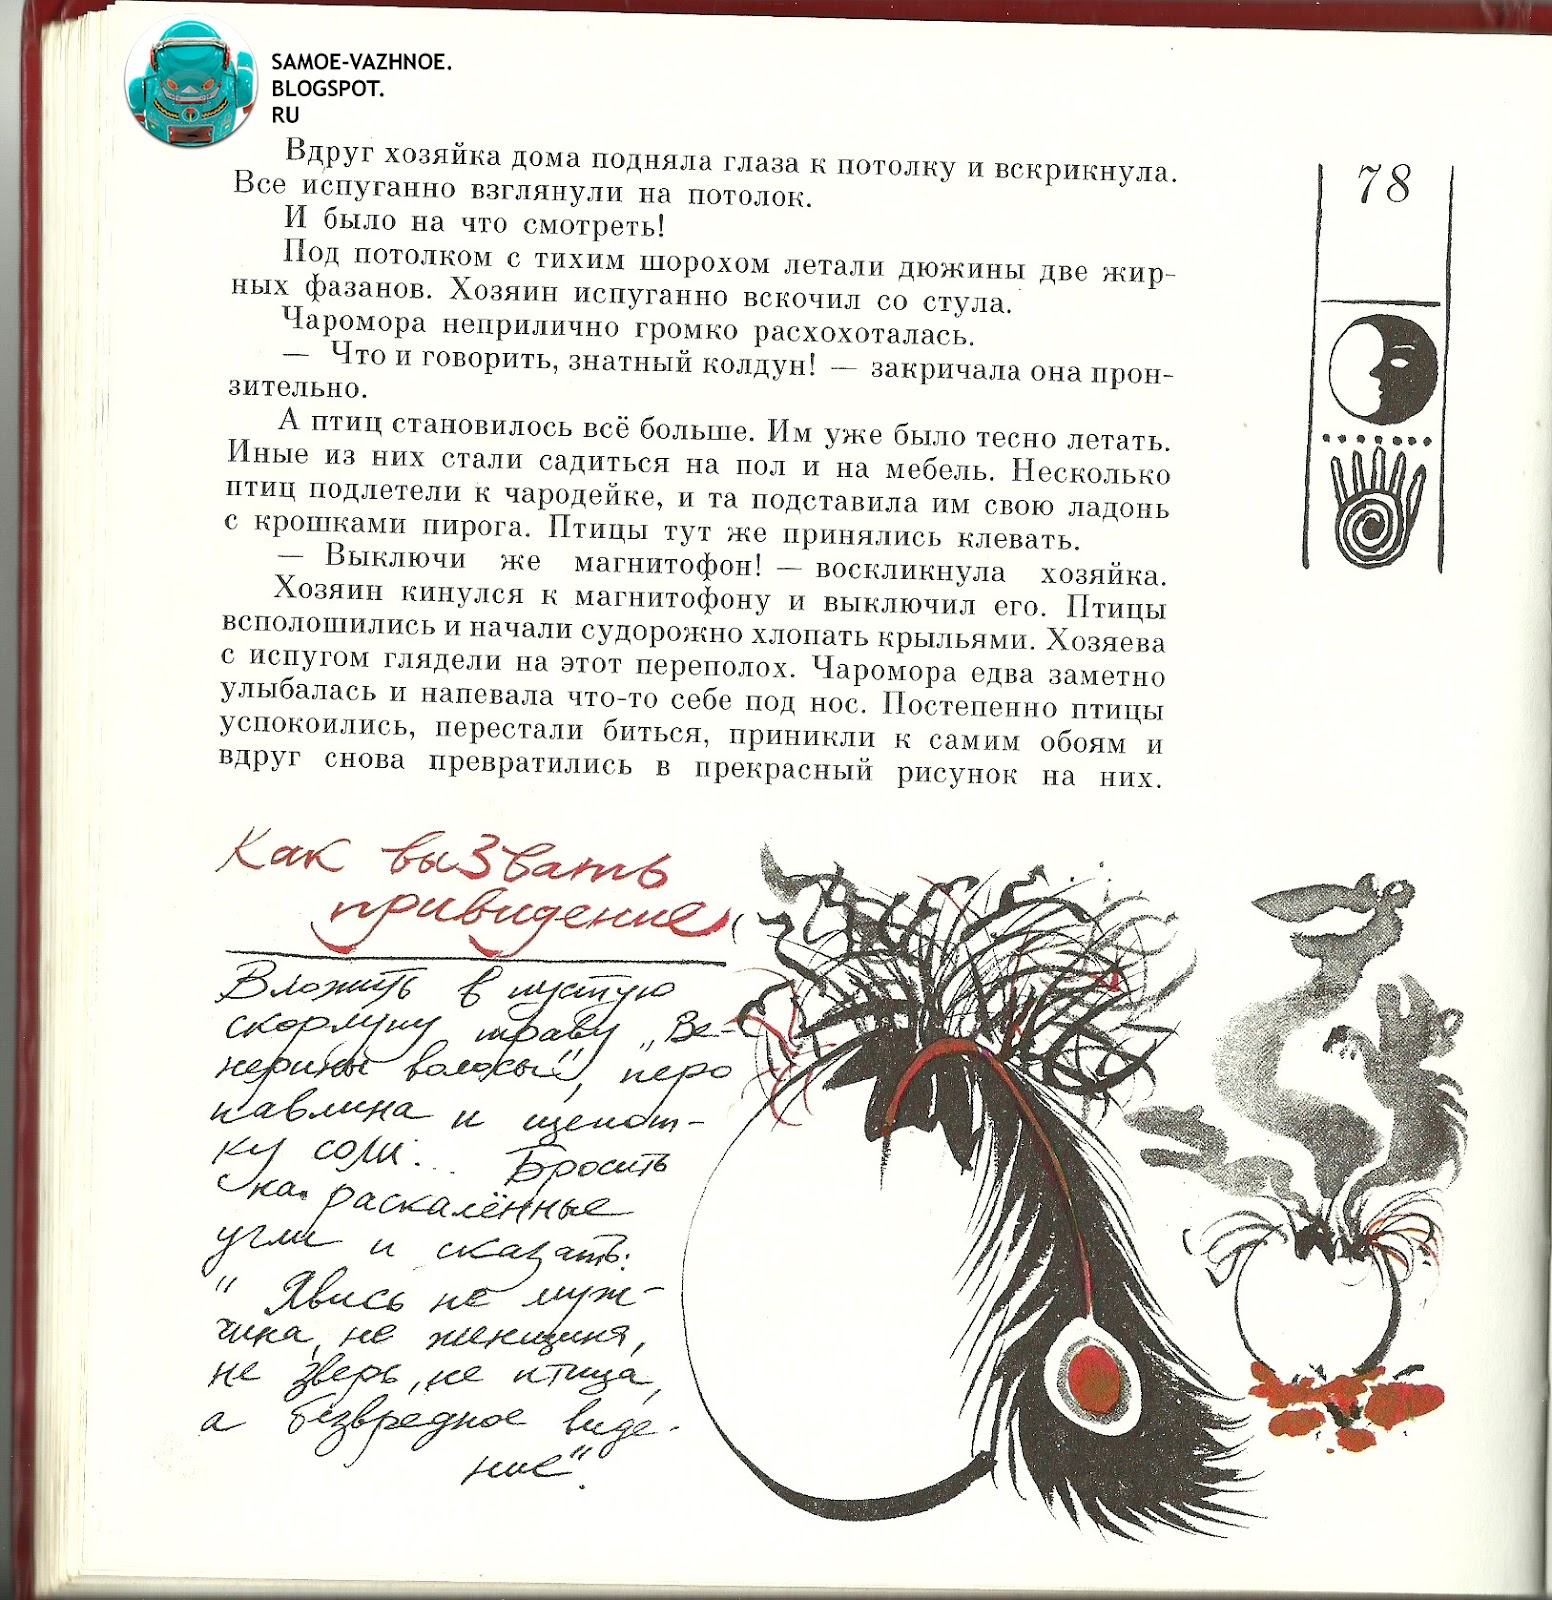 SAMOE-VAZHNOE.
BLOGSPOT.
RU
78
Вдруг хозяйка дома подняла глаза к потолку и вскрикнула.
Все испуганно взглянули на потолок.
И было на что смотреть!
Под потолком с тихим шорохом летали дюжины две жир-
ных фазанов. Хозяин испуганно вскочил со стула.
Чаромора неприлично громко расхохоталась.
— Что и говорить, знатный колдун! — закричала она прон-
зительно.
А птиц становилось всё больше. Им уже было тесно летать.
Иные из них стали садиться на пол и на мебель. Несколько
птиц подлетели к чародейке, и та подставила им свою ладонь
с крошками пирога. Птицы тут же принялись клевать.
— Выключи же магнитофон! — воскликнула хозяйка.
Хозяин кинулся к магнитофону и выключил его. Птицы
всполошились и начали судорожно хлопать крыльями. Хозяева
с испугом глядели на этот переполох. Чаромора едва заметно
улыбалась и напевала что-то себе под нос. Постепенно птицы
успокоились, перестали биться, приникли к самим обоям и
вдруг снова превратились в прекрасный рисунок на них.
Как вызвать
привидение
Вложить в пустую
скорлупу траву „Ве-
нерины волосы", перо
павлина и щепот-
ку соли... Бросить
на раскалённые
угли и сказать:
"Явись не муж-
чина, не женщина,
не зверь, не птица,
а безвредное виде-
ние".